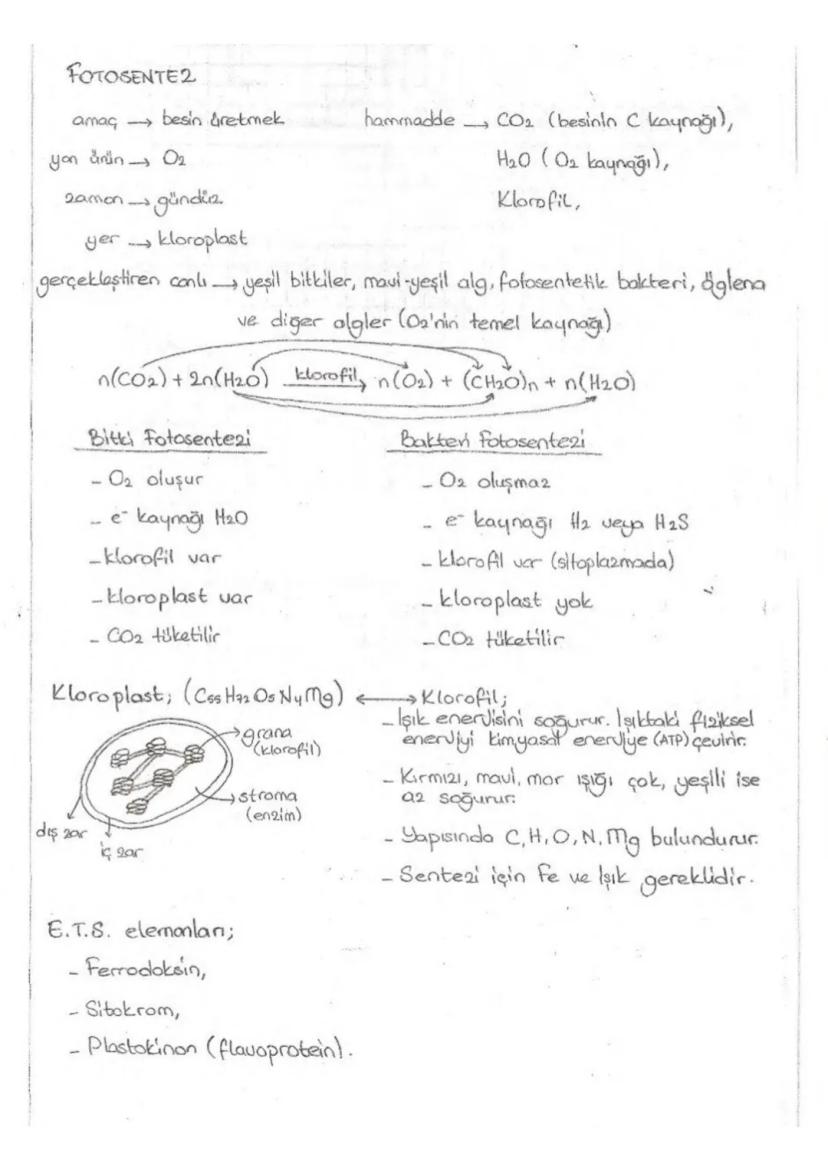 FOTOSENTEZ
amaç → besin üretmek
yan ürün → O2
zaman → gündüz
yer → kloroplast
hammadde → CO2 (besinin C kaynağı),
H2O (O2 kaynağı),
Klorofil,
gerçekleştiren canlı → yeşil bitkiler, mavi-yeşil alg, fotosentetik bakteri, öglena
ve diğer algler (O2'nin temel kaynağı)
n(CO2) + 2n(H2O) klorofil→ n(O2) + (CH2O)n + n(H2O)
Bitki Fotosentezi
- O2 oluşur
- e⁻ kaynağı H2O
- klorofil var
- kloroplast var
- CO2 tüketilir
Bakteri Fotosentezi
- O2 oluşmaz
- e⁻ kaynağı H2 veya H2S
- klorofil var (sitoplazmada)
- kloroplast yok
- CO2 tüketilir
Kloroplast; (C55H72O5N4Mg) ↔ Klorofil;
grana
(klorofil)
stroma
(enzim)
dış zar
iç zar
- Işık enerjisini soğurur. Işıktaki fiziksel
enerjiyi kimyasal enerjiye (ATP) çevirir.
- Kırmızı, mavi, mor ışığı çok, yeşili ise
az soğurur.
- Yapısında C, H, O, N, Mg bulundurur.
- Sentezi için Fe ve Işık gereklidir.
E.T.S. elemanları;
- Ferrodoksin,
- Sitokrom,
- Plastokinon (flavoprotein).